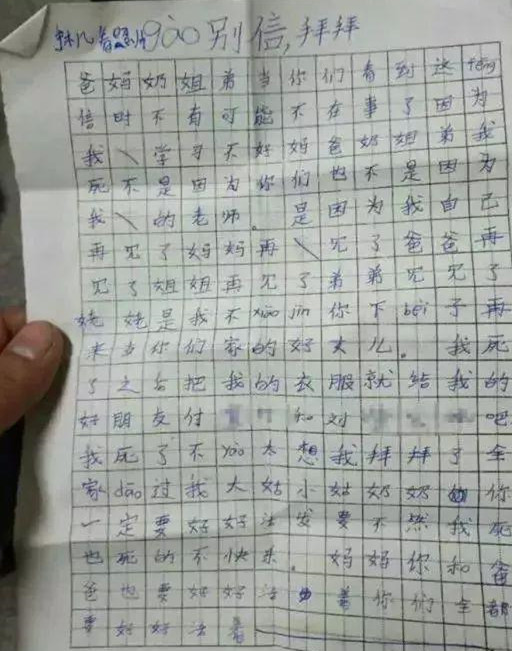 gào别信,拜拜
爸妈奶姐弟当你们看到这fēng
信时不有可能不在事了因为
我\学习不好妈爸奶姐弟我
死不是因为你们也不是因为
我\的老师。是因为我自己
再见了妈妈再\见了爸爸再
见了姐姐再见了弟弟见见了
姥姥是我不xiào jìn你下bèi子再
来当你们家的好女儿。我死
了之后把我的衣服就给我的
好朋友付 和对 吧
我死了不yào太想我拜拜了全
家dāo过我大姑小姑奶奶 你
一定要好好活发要不然我死
也死的不快乐.妈妈你和爸
爸也要好好活 着你们全都
要好好活着